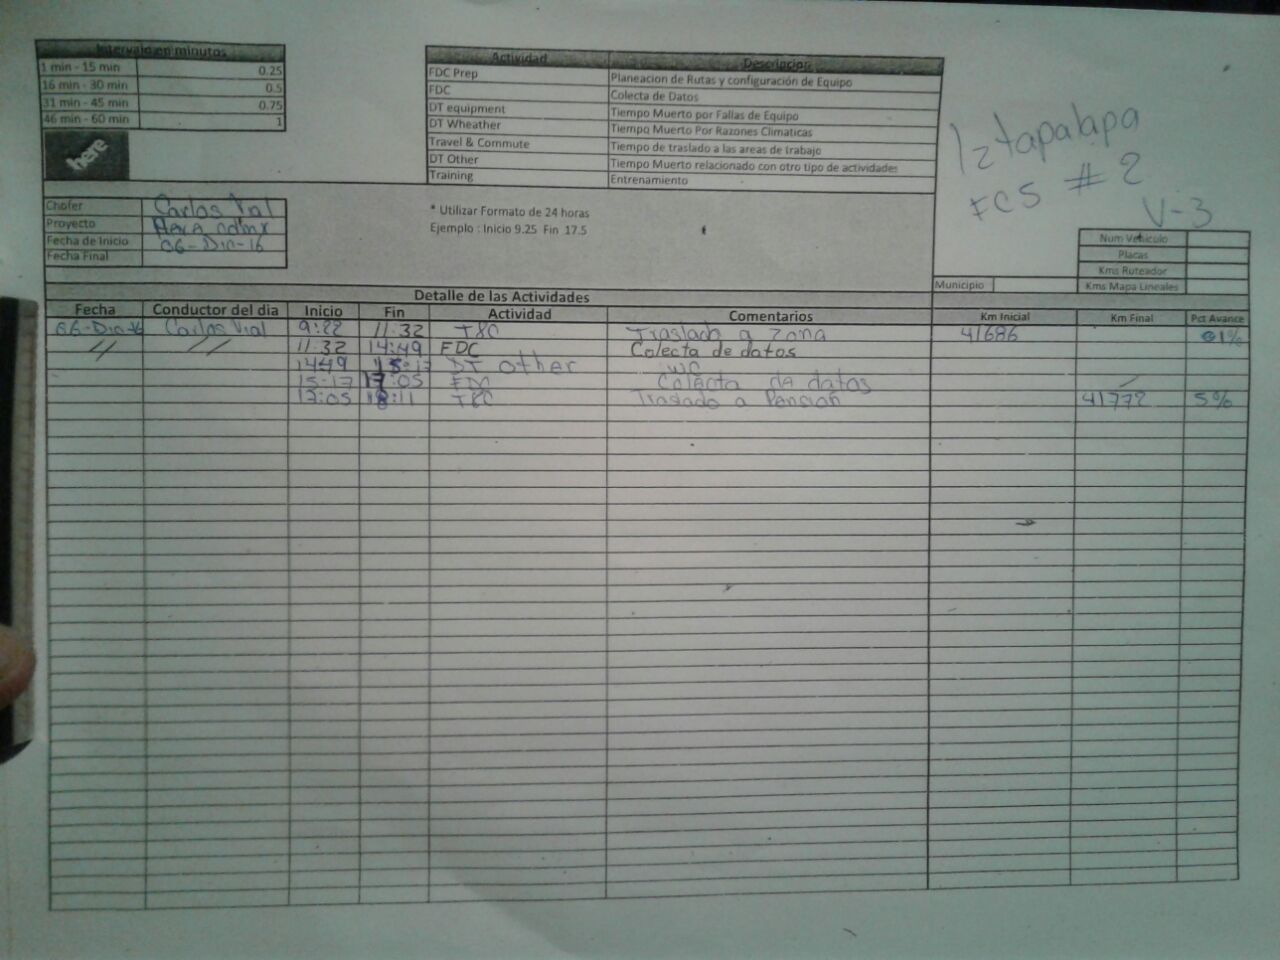 Intervalo en minutos
1 min - 15 min 0.25
16 min - 30 min 0.5
31 min - 45 min 0.75
46 min - 60 min 1
here
Actividad Descripcion
FDC Prep Planeacion de Rutas y configuración de Equipo
FDC Colecta de Datos
DT equipment Tiempo Muerto por Fallas de Equipo
DT Wheather Tiempo Muerto Por Razones Climaticas
Travel & Commute Tiempo de traslado a las areas de trabajo
DT Other Tiempo Muerto relacionado con otro tipo de actividades
Training Entrenamiento
Iztapalapa
FCS # 2
V-3
Chofer Carlos Vial
Proyecto
Fecha de Inicio 06-Dic-16
Fecha Final
* Utilizar Formato de 24 horas
Ejemplo : Inicio 9.25 Fin 17.5
Num Vehiculo
Placas
Kms Ruteador
Municipio Kms Mapa Lineales
Detalle de las Actividades
Fecha Conductor del dia Inicio Fin Actividad Comentarios Km Inicial Km Final Pct Avance
06-Dic-16 Carlos Vial 9:22 11:32 T&C Traslado a Zona 41686 1%
// // 11:32 14:49 FDC Colecta de datos
14:49 15:17 DT other WC
15:17 17:05 FDC Colecta de datos
17:05 18:11 T&C Traslado a Pension 41772 5%